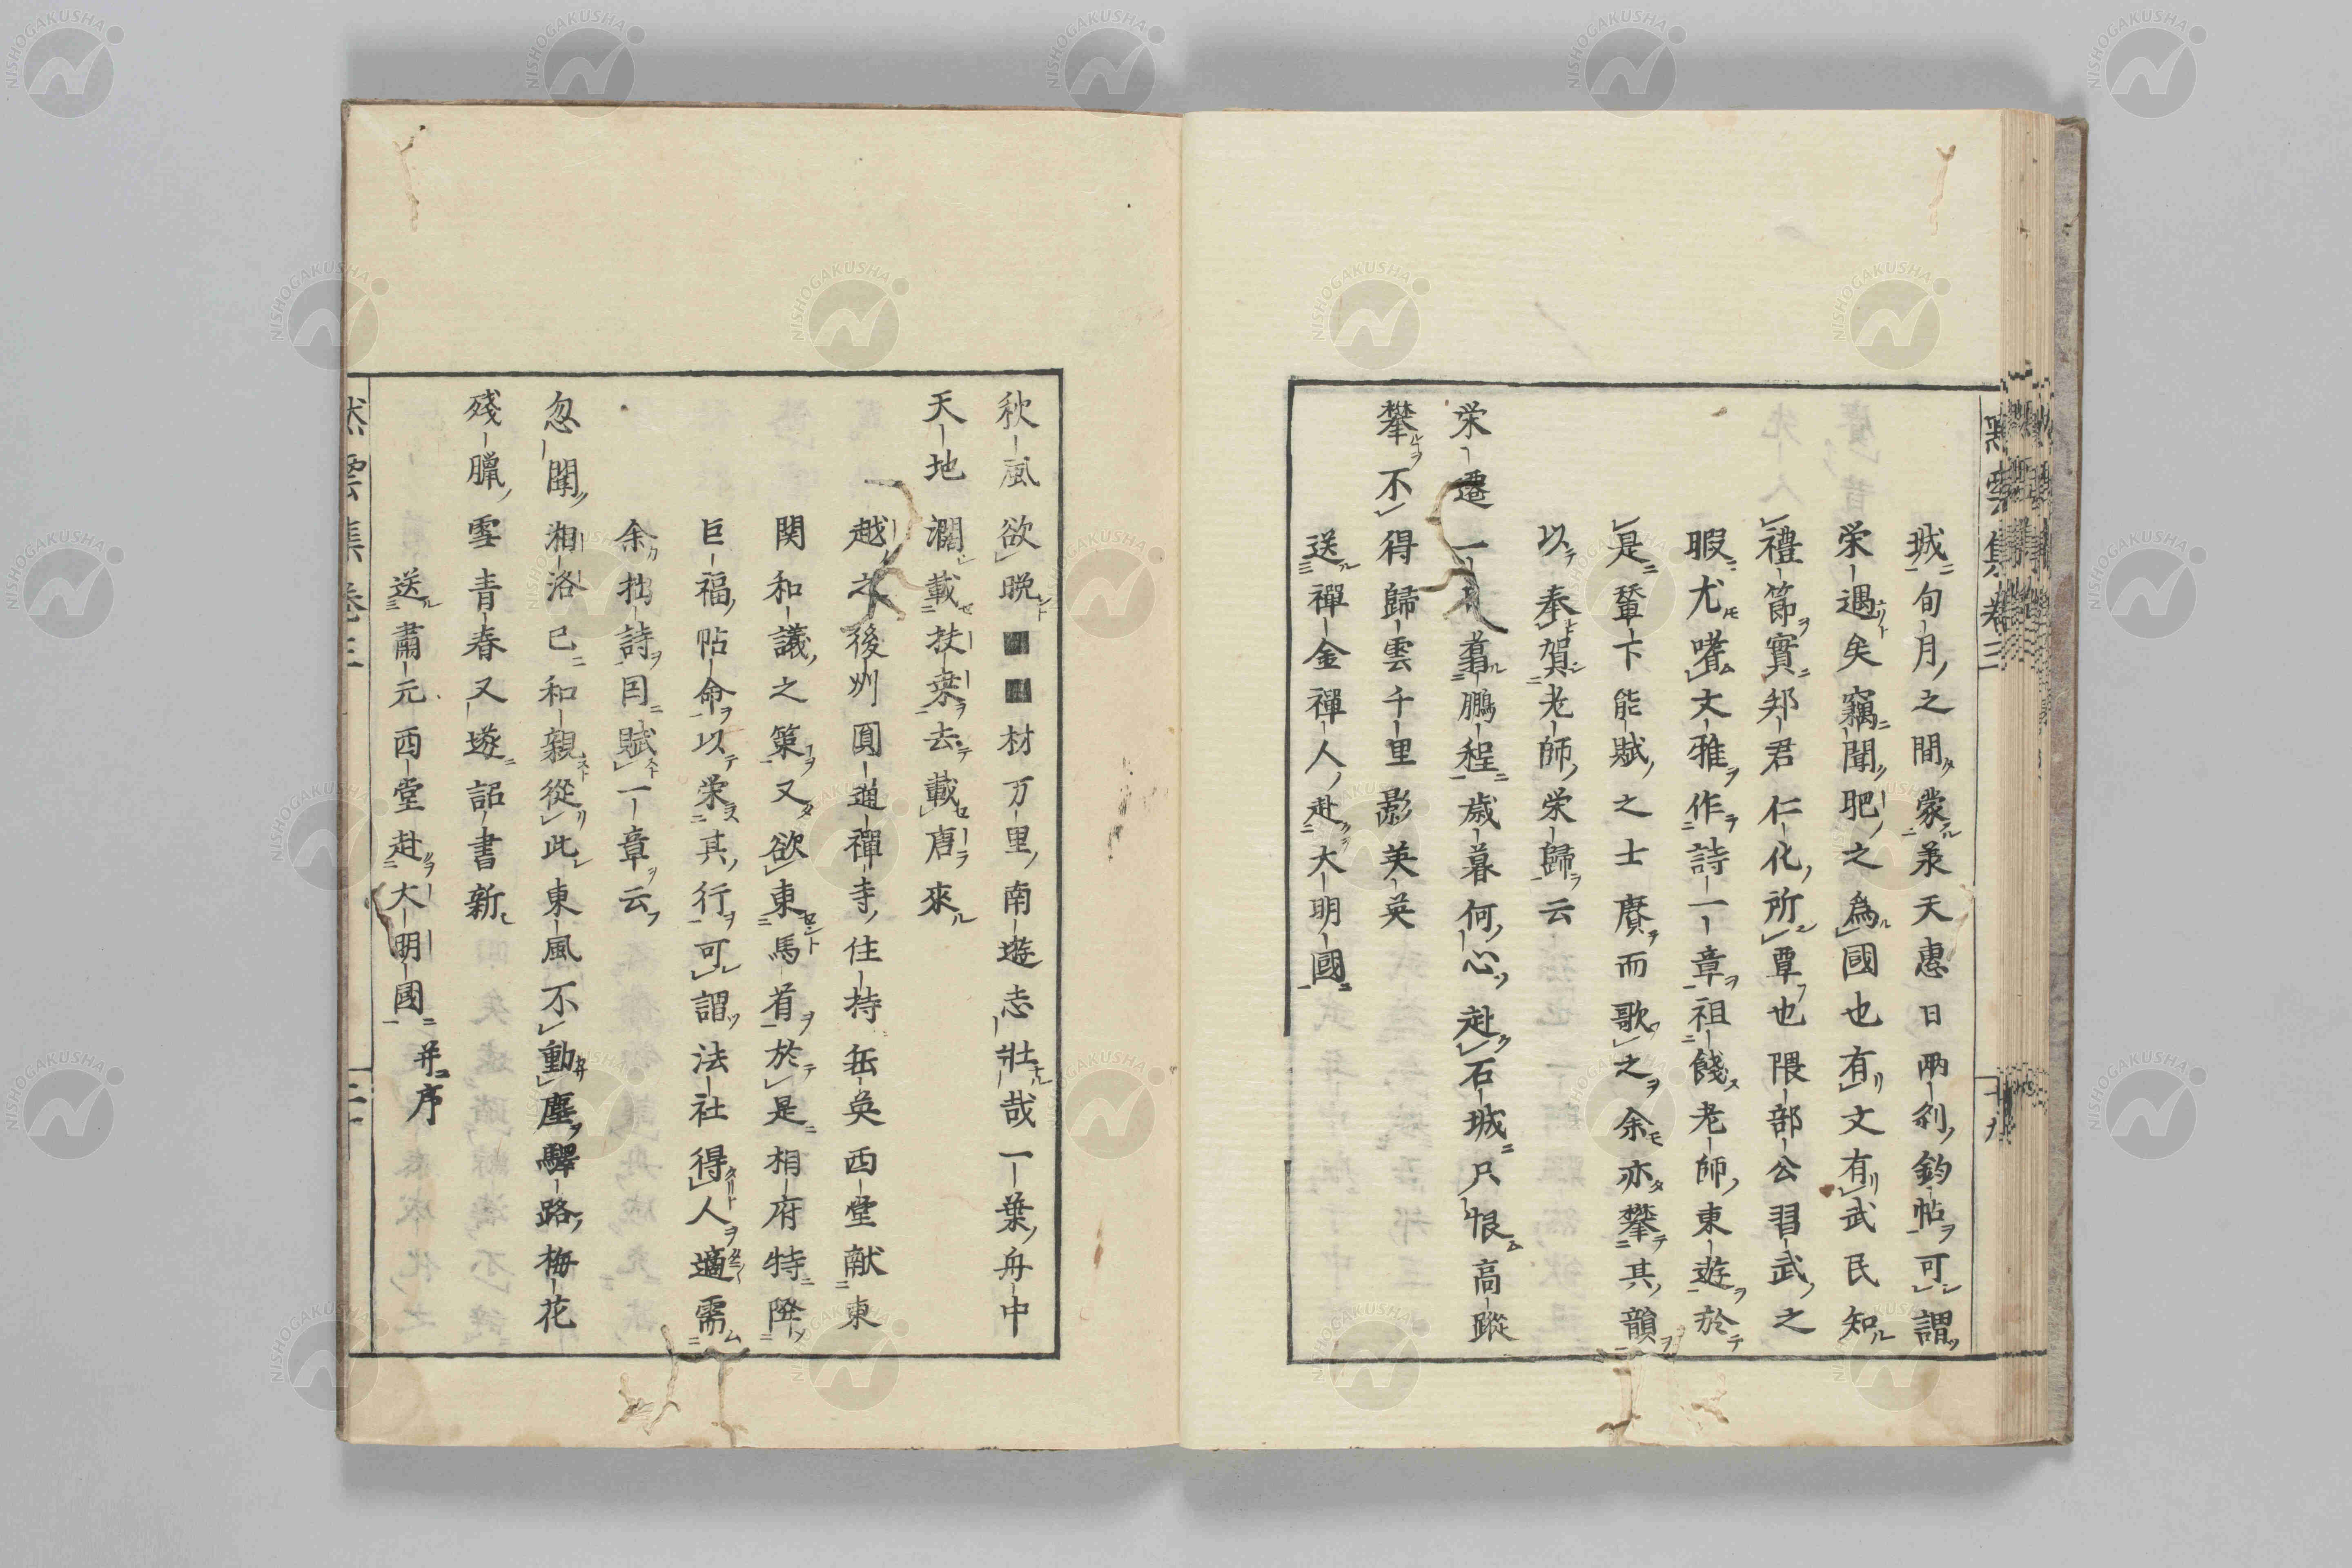 城旬月之間蒙兼天恵日兩刹鈞帖可謂
栄遇矣竊聞肥之為國也有文有武民知
禮節實邦君仁化所覃也隈部公習武之
暇尤嗜文雅作詩一章祖餞老師東遊於
是輩下能賦之士賡而歌之余亦攀其韻
以奉賀老師栄歸云
栄遷一鵬程歳暮何心赴石城只恨高蹤
攀不得歸雲千里影英英
送禪金禪人赴大明國
秋風欲晩■■材万里南遊志壯哉一葉舟中
天地濶載扶桒去載唐來
越之後州圓通禪寺住持岳英西堂献東
関和議之策又欲東馬首於是相府特降
巨福帖命以栄其行可謂法社得人適需
余拙詩因賦一章云
忽聞湘洛已和親從此東風不動塵驛路梅花
殘臘雪青春又遊詔書新
送肅元西堂赴大明國 并序
黙雲集卷三
NISHOGAKUSHA